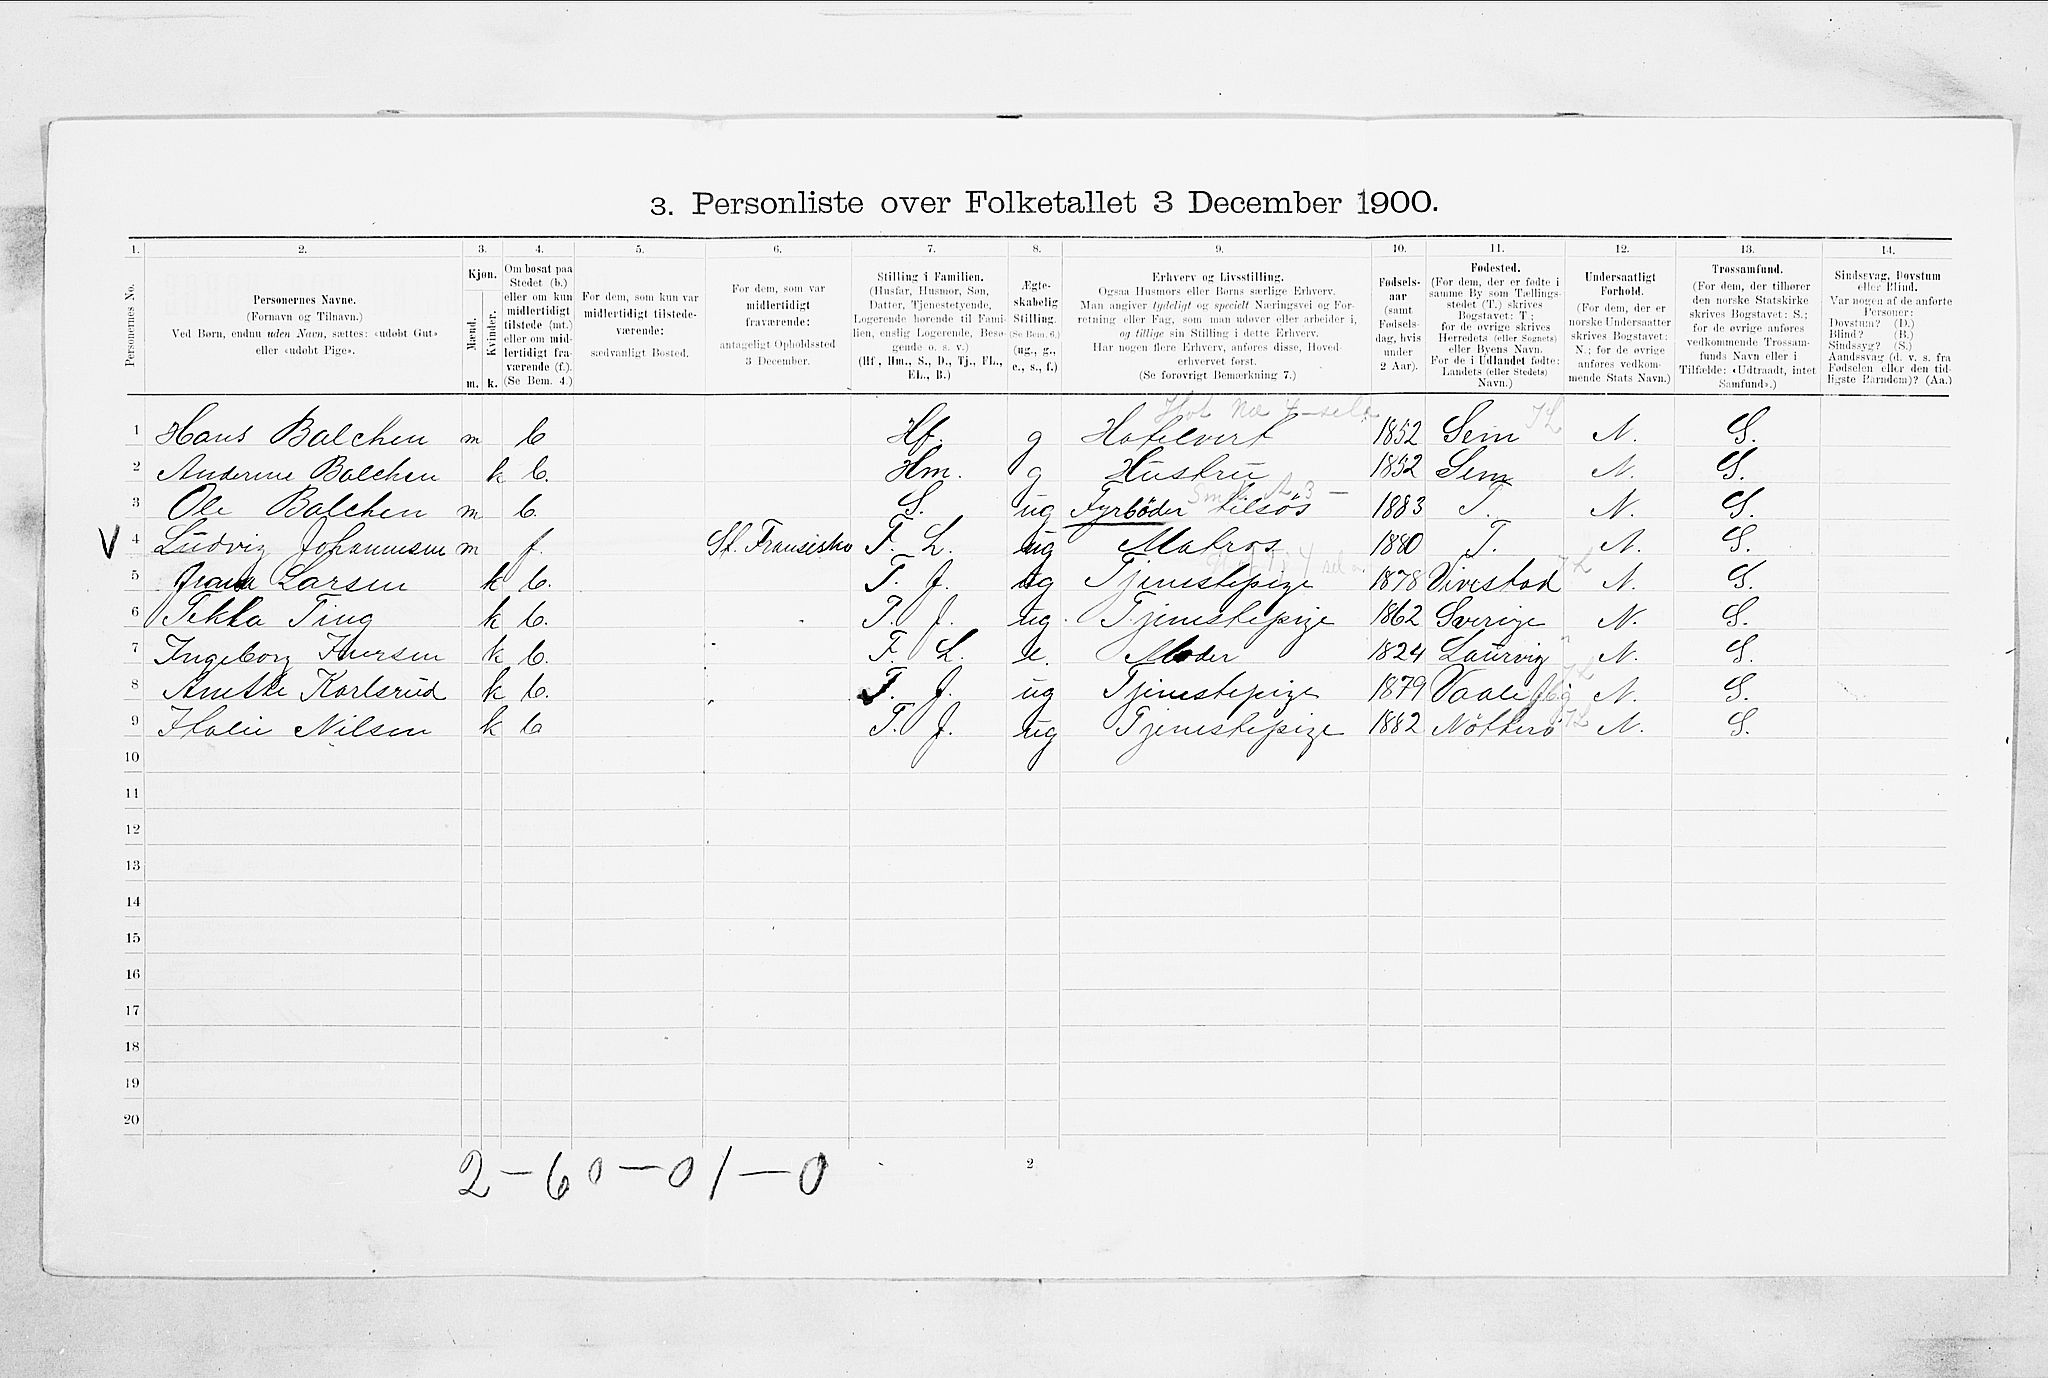 3. Personliste over Folketallet 3 December 1900.
1. 2. 3. 4. 5. 6. 7. 8. 9. 10. 11. 12. 13. 14.
Personernes No.
Personernes Navne.
(Fornavn og Tilnavn.)
Ved Børn, endnu uden Navn, sættes: «udøbt Gut»
eller «udøbt Pige».
Kjøn.
Mænd.
Kvinder.
m. k.
Om bosat paa
Stedet (b.)
eller om kun
midlertidigt
tilstede (mt.)
eller om mid-
lertidigt fra-
værende (f.).
(Se Bem. 4.)
For dem, som kun var
midlertidigt tilstede-
værende:
sædvanligt Bosted.
For dem, som var
midlertidigt
fraværende:
antageligt Opholdssted
3 December.
Stilling i Familien.
(Husfar, Husmor, Søn,
Datter, Tjenestetyende,
Logerende hørende til Fami-
lien, enslig Logerende, Besø-
gende o. s. v.)
(Hf., Hm., S., D., Tj., FL.,
EL., B.)
Ægte-
skabelig
Stilling.
(Se Bem. 6.)
(ug., g.,
e., s., f.)
Erhverv og Livsstilling.
Ogsaa Husmors eller Børns særlige Erhverv.
Man angiver tydeligt og specielt Næringsvei og For-
retning eller Fag, som man udøver eller arbeider i,
og tillige sin Stilling i dette Erhverv.
Har nogen flere Erhverv, anføres disse, Hoved-
erhvervet først.
(Se forøvrigt Bemærkning 7.)
Fødsels-
aar
(samt
Fødsels-
dag, hvis
under
2 Aar).
Fødested.
(For dem, der er fødte i
samme By som Tællings-
stedet (T.) skrives
Bogstavet: T;
for de øvrige skrives
Herredets (eller Sognets)
eller Byens Navn.
For de i Udlandet fødte:
Landets (eller Stedets)
Navn.)
Undersaatligt
Forhold.
(For dem, der er
norske Undersaatter
skrives Bogstavet:
N.; for de øvrige
anføres vedkom-
mende Stats Navn.)
Trossamfund.
(For dem, der tilhører
den norske Statskirke
skrives Bogstavet: S.;
for de øvrige anføres
vedkommende Trossam-
funds Navn eller i
Tilfælde: «Udtraadt, intet
Samfund».)
Sindssvag, Døvstum
eller Blind.
Var nogen af de anførte
Personer:
Døvstum? (D.)
Blind? (B.)
Sindssyg? (S.)
Aandssvag (d. v. s. fra
Fødselen eller den tid-
ligste Barndom)? (Aa.)
1 Hans Balchen m b Hf. g Hotelvert 1852 Sem N. S.
2 Anderine Balchen k b. Hm. g Hustru 1852 Sem N. S.
3 Ole Balchen m b. S. ug Fyrbøder tilsøs 1883 T. N. S.
V 4 Ludvig Johannesen m f. St. Fransisko F. L. ug Matros 1880 T. N. S.
5 Larsen k b. T. J. ug Tjenestepige 1878 Vivestad N. S.
6 Tekla Ting k b. T. J. ug. Tjenestepige 1862 Sverige N. S.
7 Ingeborg Iversen k b. F. L. e. Moder 1824 Laurvig N. S.
8 Anette Karlsrud k b. T. J. ug Tjenestepige 1879 Vaale N. S.
9 Nilsen k b T. J. ug Tjenestepige 1882 Nötterö N. S.
10
11
12
13
14
15
16
17
18
19
20
2 – 60 – 01 – 0
2